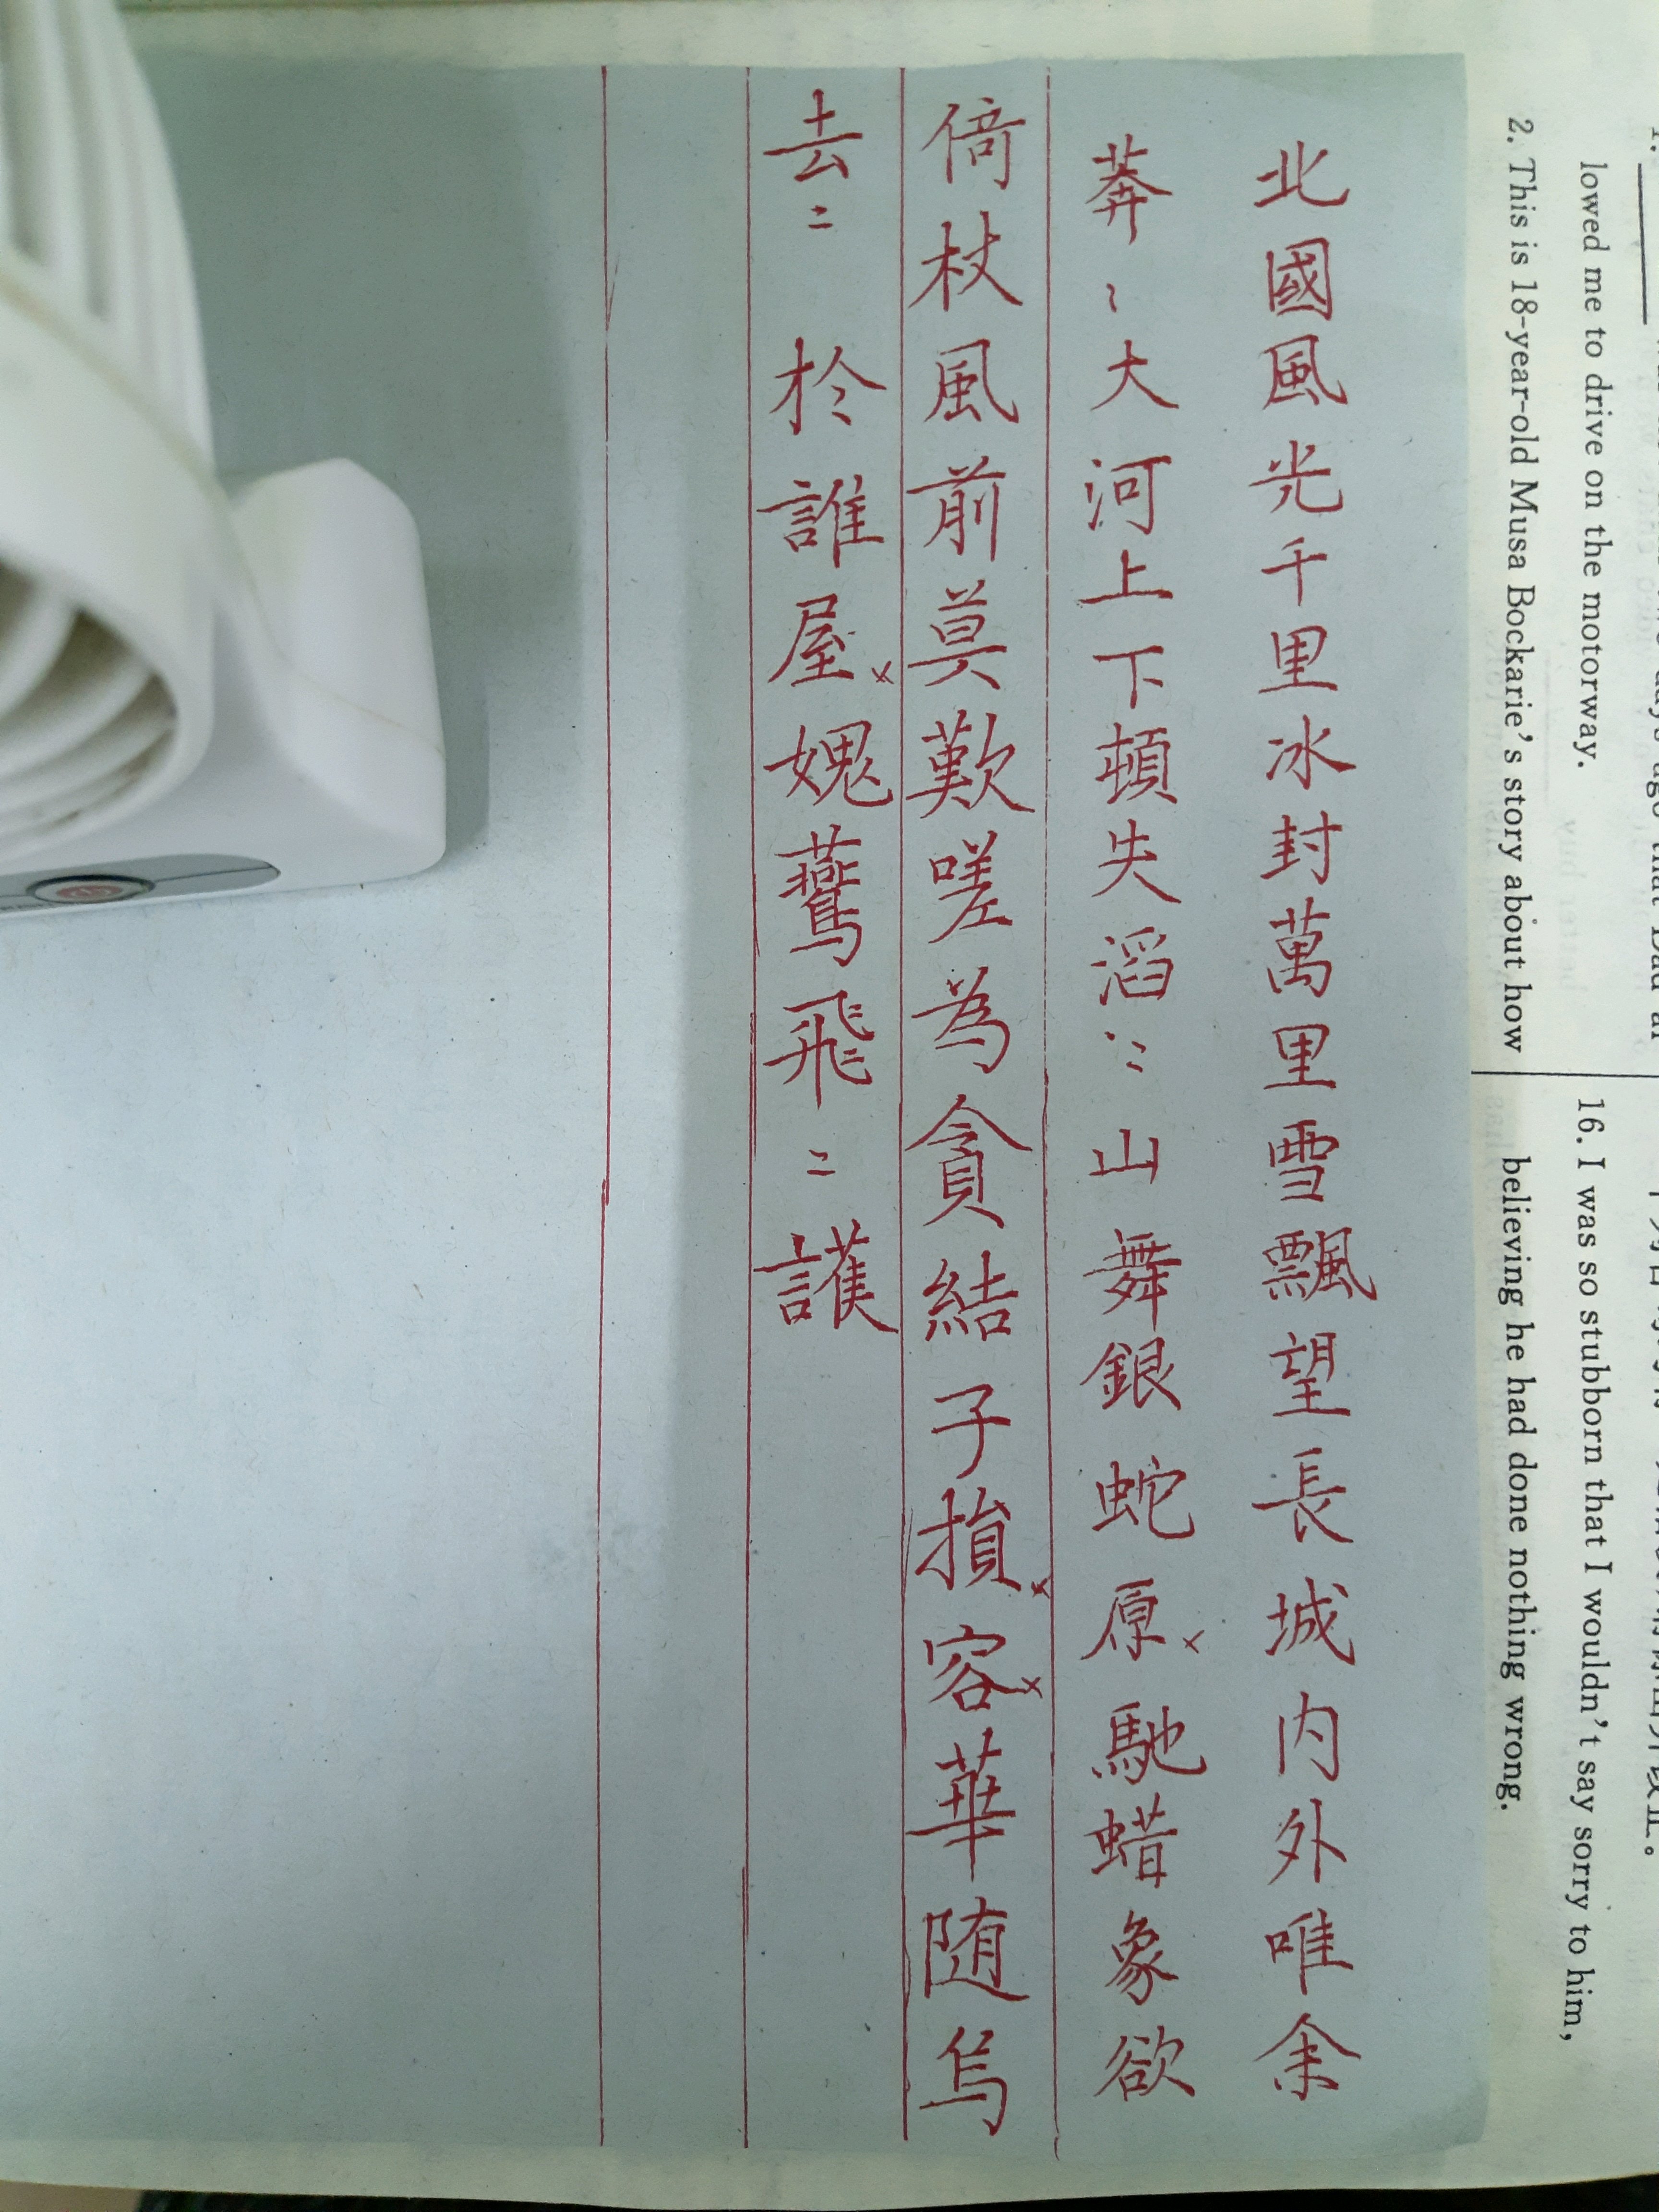 北國風光千里冰封萬里雪飄望長城内外唯余
莽〻大河上下頓失滔〻山舞銀蛇原馳蜡象欲
倚杖風前莫歎嗟為貪結子損容華随烏
去〻於誰屋媿鷰飛〻護
lowed me to drive on the motorway.
2. This is 18-year-old Musa Bockarie's story about how
16. I was so stubborn that I wouldn't say sorry to him,
believing he had done nothing wrong.